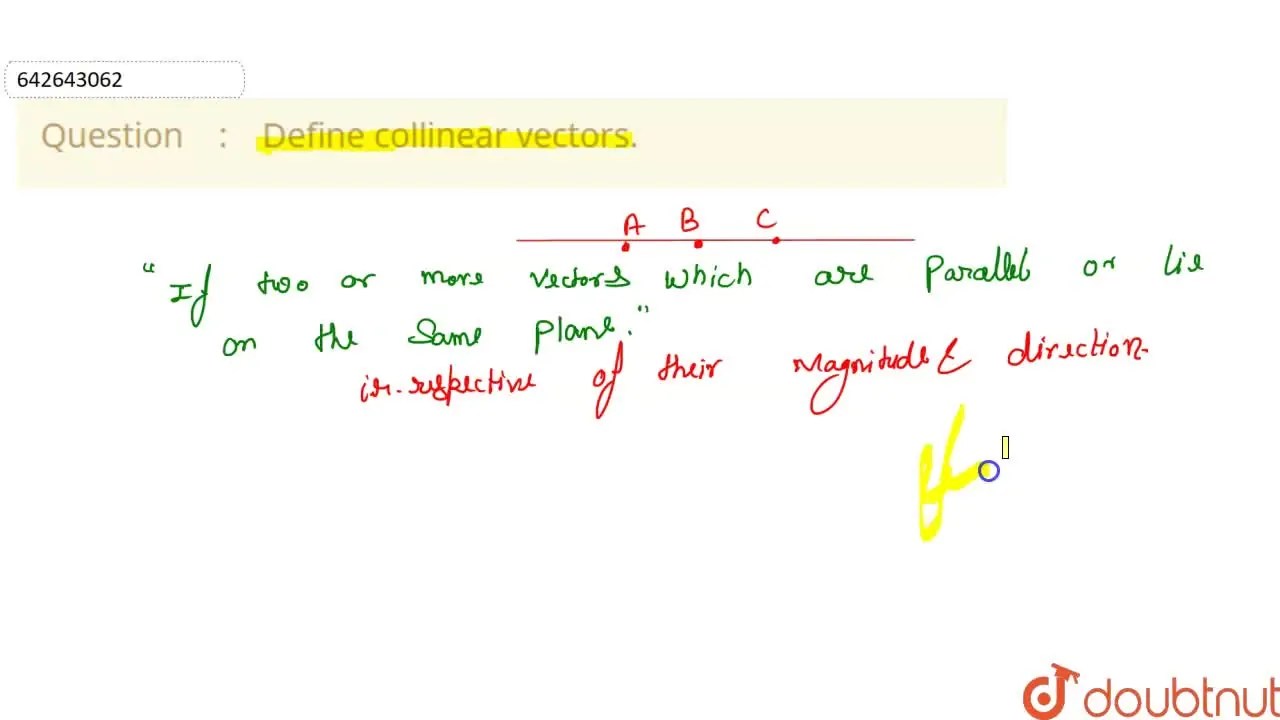 642643062
Question : Define collinear vectors.
A B C
"If two or more vectors which are Parallel or lie
on the same plane."
ir-respective of their Magnitude & direction.
doubtnut